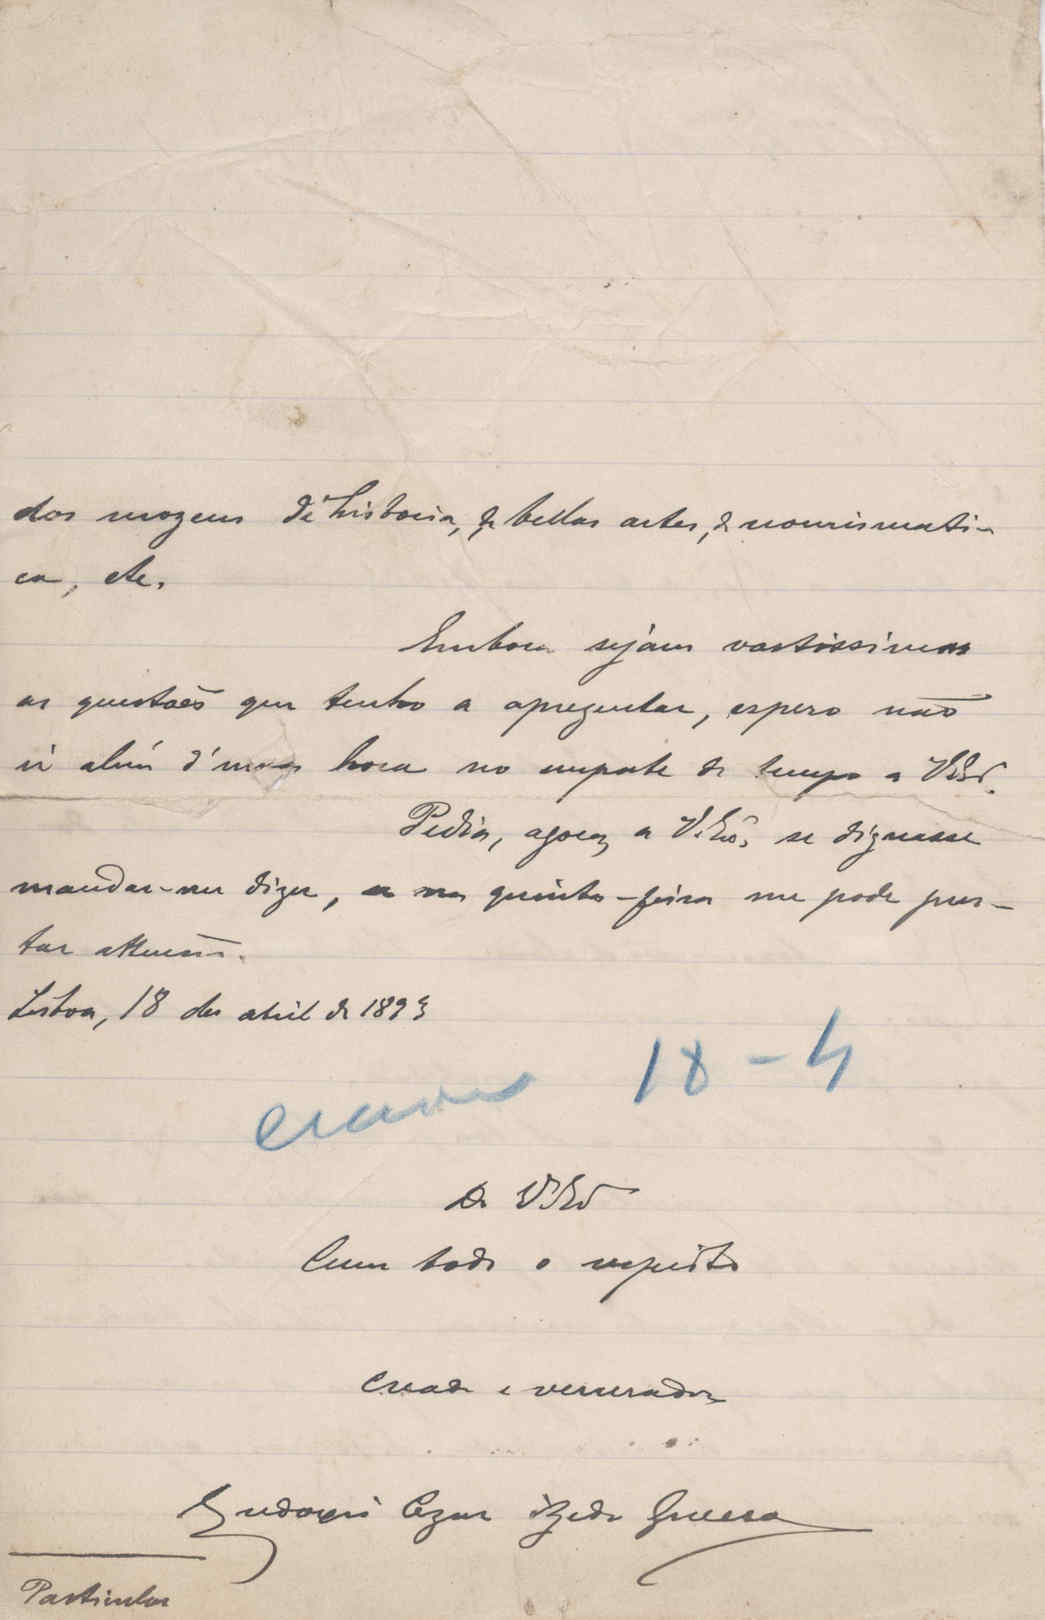 dos mozeus de historia, de bellas artes, de noumismati-
ca, etc.
Embora sejam vastissimas
as questões que tenho a aprezentar, espero não
ir além d'uma hora no emporte de tempo a V. Exª.
Pedia, agora, a V. Exª, se dignasse
mandar-me dizer, se na quinta-feira me pode pres-
tar attenção.
Lisboa, 18 de abril de 1893
18-4
De V. Exª
Com todo o respeito
Creado e venerador
Eudoxio Cezar Azedo Gneco
Particular